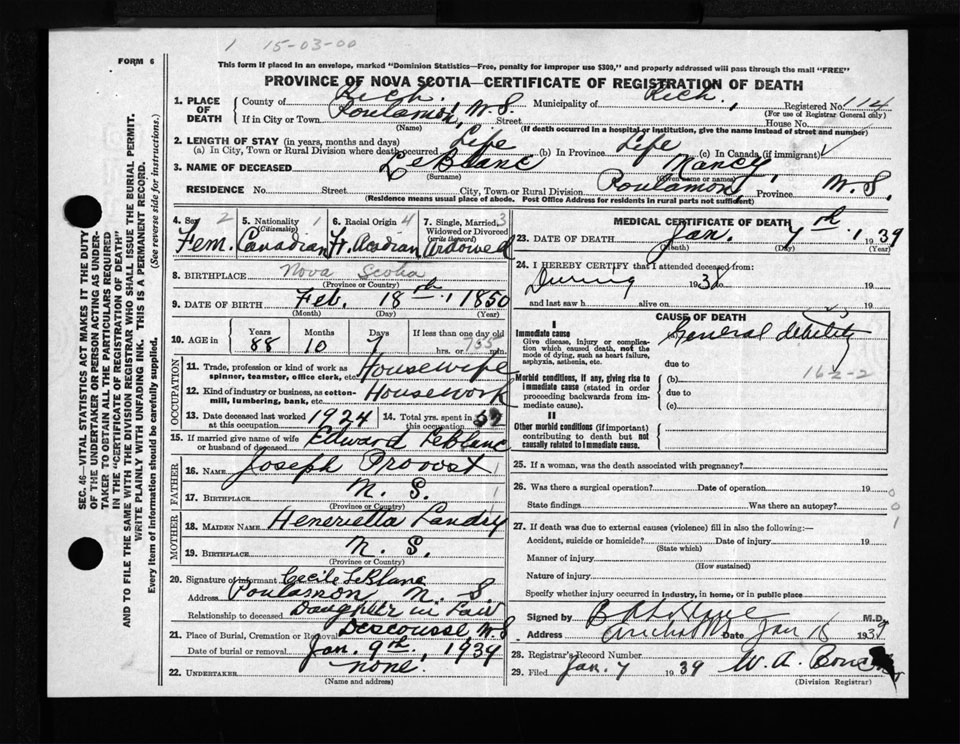 1 15-03-00
FORM 6
This form if placed in an envelope, marked "Dominion Statistics—Free, penalty for improper use $300," and properly addressed will pass through the mail "FREE"
PROVINCE OF NOVA SCOTIA—CERTIFICATE OF REGISTRATION OF DEATH
1. PLACE OF DEATH County of Rich. Municipality of Rich. Registered No. 114
(For use of Registrar General only)
If in City or Town Poulamon, N.S. Street House No.
(Name) (If death occurred in a hospital or institution, give the name instead of street and number)
2. LENGTH OF STAY (in years, months and days)
(a) In City, Town or Rural Division where death occurred Life (b) In Province Life (c) In Canada (if immigrant)
3. NAME OF DECEASED LeBlanc Nancy
(Surname) (Given name or names)
RESIDENCE No. Street City, Town or Rural Division Poulamon Province N.S.
(Residence means usual place of abode. Post Office Address for residents in rural parts not sufficient)
4. Sex 2 Fem.
5. Nationality (Citizenship) 1 Canadian
6. Racial Origin 4 Fr. Acadian
7. Single, Married, Widowed or Divorced (write the word) 3 Widowed
8. BIRTHPLACE Nova Scotia
(Province or Country)
9. DATE OF BIRTH Feb. 18th 1850
(Month) (Day) (Year)
10. AGE in Years 88 Months 10 Days If less than one day old hrs. or min.
OCCUPATION
11. Trade, profession or kind of work as spinner, teamster, office clerk, etc. Housewife
12. Kind of industry or business, as cotton-mill, lumbering, bank, etc. Housework
13. Date deceased last worked at this occupation 1924
14. Total yrs. spent in this occupation
15. If married give name of wife or husband of deceased Edward Leblanc
FATHER
16. NAME Joseph Provost
17. BIRTHPLACE N. S.
(Province or Country)
MOTHER
18. MAIDEN NAME Henerietta Landry
19. BIRTHPLACE N. S.
(Province or Country)
20. Signature of informant Cecile LeBlanc
Address Poulamon N. S.
Relationship to deceased Daughter in Law
21. Place of Burial, Cremation or Removal Descousse N.S
Date of burial or removal Jan. 9th, 1939
22. UNDERTAKER none.
(Name and address)
MEDICAL CERTIFICATE OF DEATH
23. DATE OF DEATH Jan. 7th 1939
(Month) (Day)
24. I HEREBY CERTIFY that I attended deceased from:
During 1938 to 19
and last saw h alive on 19
CAUSE OF DEATH
I
Immediate cause
Give disease, injury or complication which caused death, not the mode of dying, such as heart failure, asphyxia, asthenia, etc.
General debility
due to
162-2
Morbid conditions, if any, giving rise to immediate cause (stated in order proceeding backwards from immediate cause).
(b)
due to
(c)
II
Other morbid conditions (if important) contributing to death but not causally related to immediate cause.
25. If a woman, was the death associated with pregnancy?
26. Was there a surgical operation? Date of operation 19
State findings Was there an autopsy?
27. If death was due to external causes (violence) fill in also the following:—
Accident, suicide or homicide? Date of injury 19
(State which)
Manner of injury
(How sustained)
Nature of injury
Specify whether injury occurred in industry, in home, or in public place
Signed by M.D.
Address Arichat Date Jan 1939
28. Registrar's Record Number
29. Filed Jan. 7 1939 W. A.
(Division Registrar)
SEC. 46—VITAL STATISTICS ACT MAKES IT THE DUTY
OF THE UNDERTAKER OR PERSON ACTING AS UNDER-
TAKER TO OBTAIN ALL THE PARTICULARS REQUIRED
IN THE "CERTIFICATE OF REGISTRATION OF DEATH"
AND TO FILE THE SAME WITH THE DIVISION REGISTRAR WHO SHALL ISSUE THE BURIAL PERMIT.
WRITE PLAINLY WITH UNFADING INK. THIS IS A PERMANENT RECORD.
Every item of information should be carefully supplied. (See reverse side for instructions.)